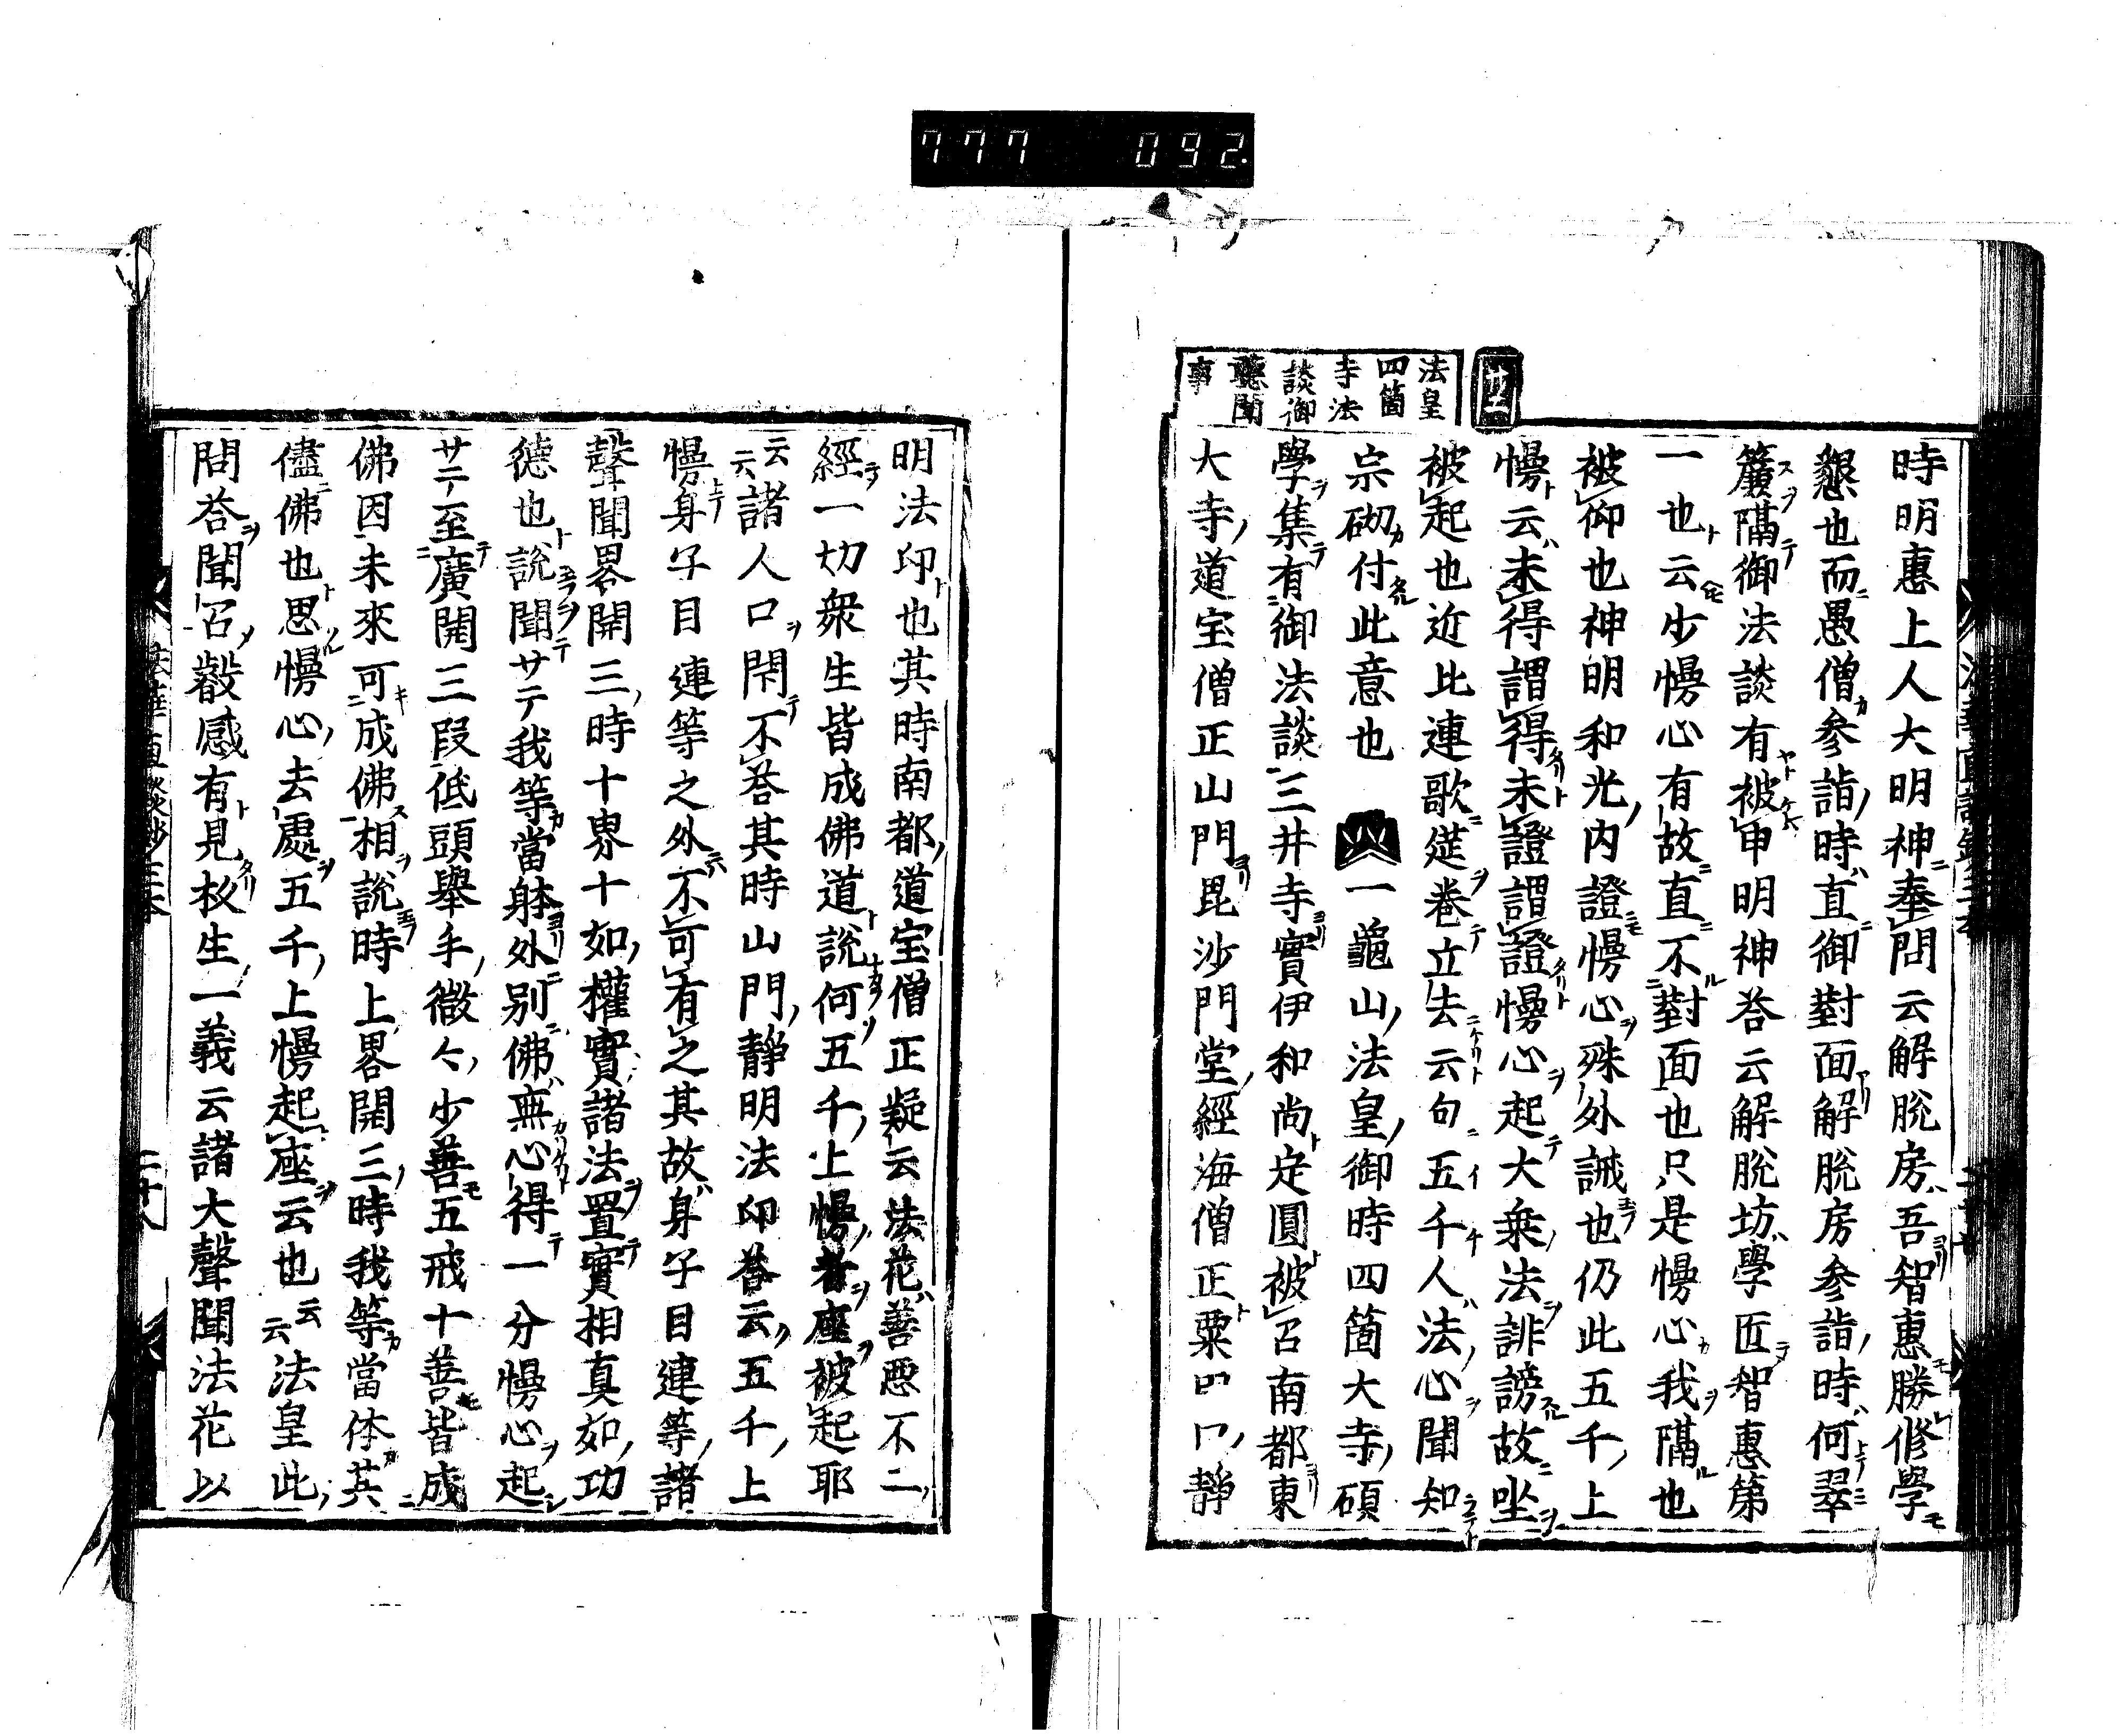 777 092.
廿一
法皇
四箇
寺法
談御
聽聞
事
時明惠上人大明神奉問云解脫房吾智惠勝修學
懇也而愚僧參詣時直御對面解脫房參詣時何翠
簾隔御法談有被申明神荅云解脫坊學匠智惠第
一也云少慢心有故直不對面也只是慢心我隔也
被仰也神明和光内證慢心殊外誡也仍此五千上
慢云未得謂得未證謂證慢心起大乘法誹謗故坐
被起也近比連歌莚卷立去云句五千人法心聞知
宗砌付此意也 一龜山法皇御時四箇大寺碩
學集有御法談三井寺實伊和尚定圓被召南都東
大寺道宝僧正山門毘沙門堂經海僧正粟田口靜
明法印也其時南都道宝僧正疑云法花善惡不二
經一切衆生皆成佛道說何五千上慢者座被起耶
云云諸人口閇不荅其時山門靜明法印荅云五千上
慢身子目連等之外不可有之其故身子目連等諸
聲聞畧開三時十界十如權實諸法置實相真如功
德也說聞サテ我等當躰外別佛無心得一分慢心起
サテ至廣開三段低頭舉手微々少善五戒十善皆成
佛因未來可成佛相說時上畧開三時我等當体其
儘佛也思慢心去處五千上慢起座云也云云法皇此
問荅聞召叡感有見 生一義云諸大聲聞法花以